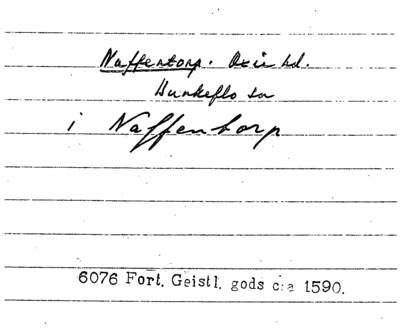 Naffentorp. Oxie hd.
Bunkeflo sn
i Naffentorp
6076 Fort. Geistl. gods c:a 1590.